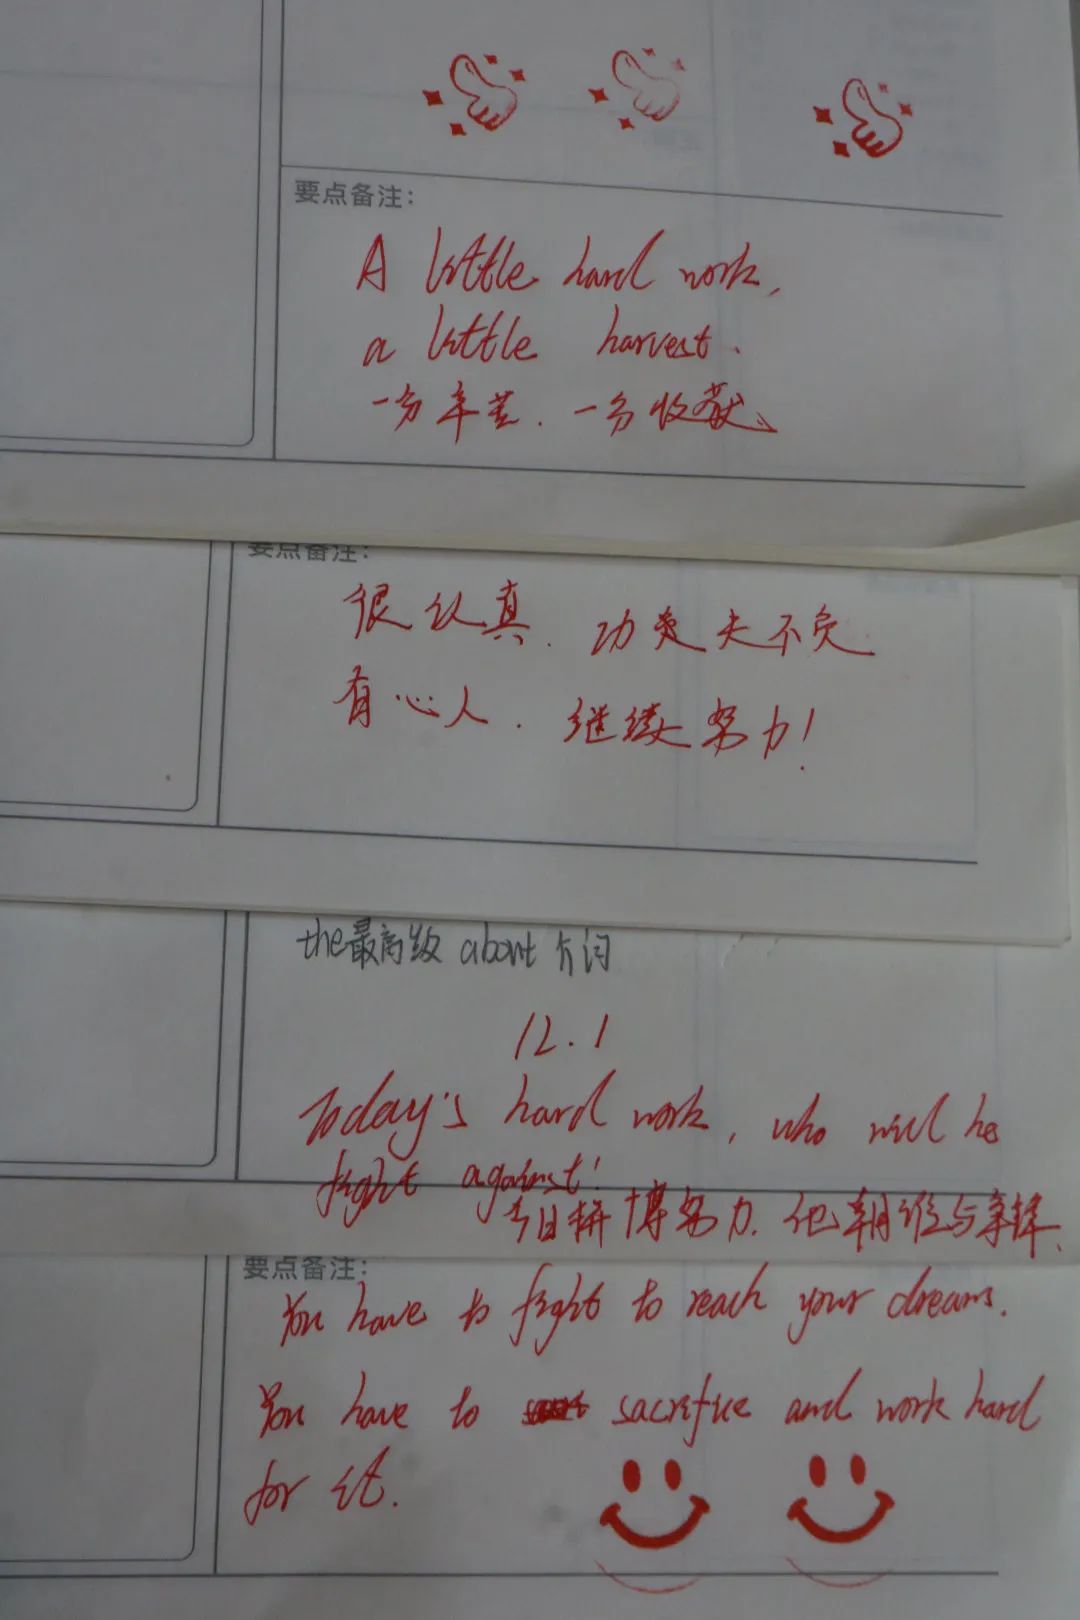 要点备注：
A little hard work,
a little harvest.
一分辛苦.一分收获。
要点备注：
很认真.功夫不负
有心人.继续努力!
the最高级 about 介词
12.1
Today's hard work, who will he
fight against!
今日拼博努力.他朝谁与争锋.
要点备注：
You have to fight to reach your dreams.
You have to sacrifice and work hard
for it.